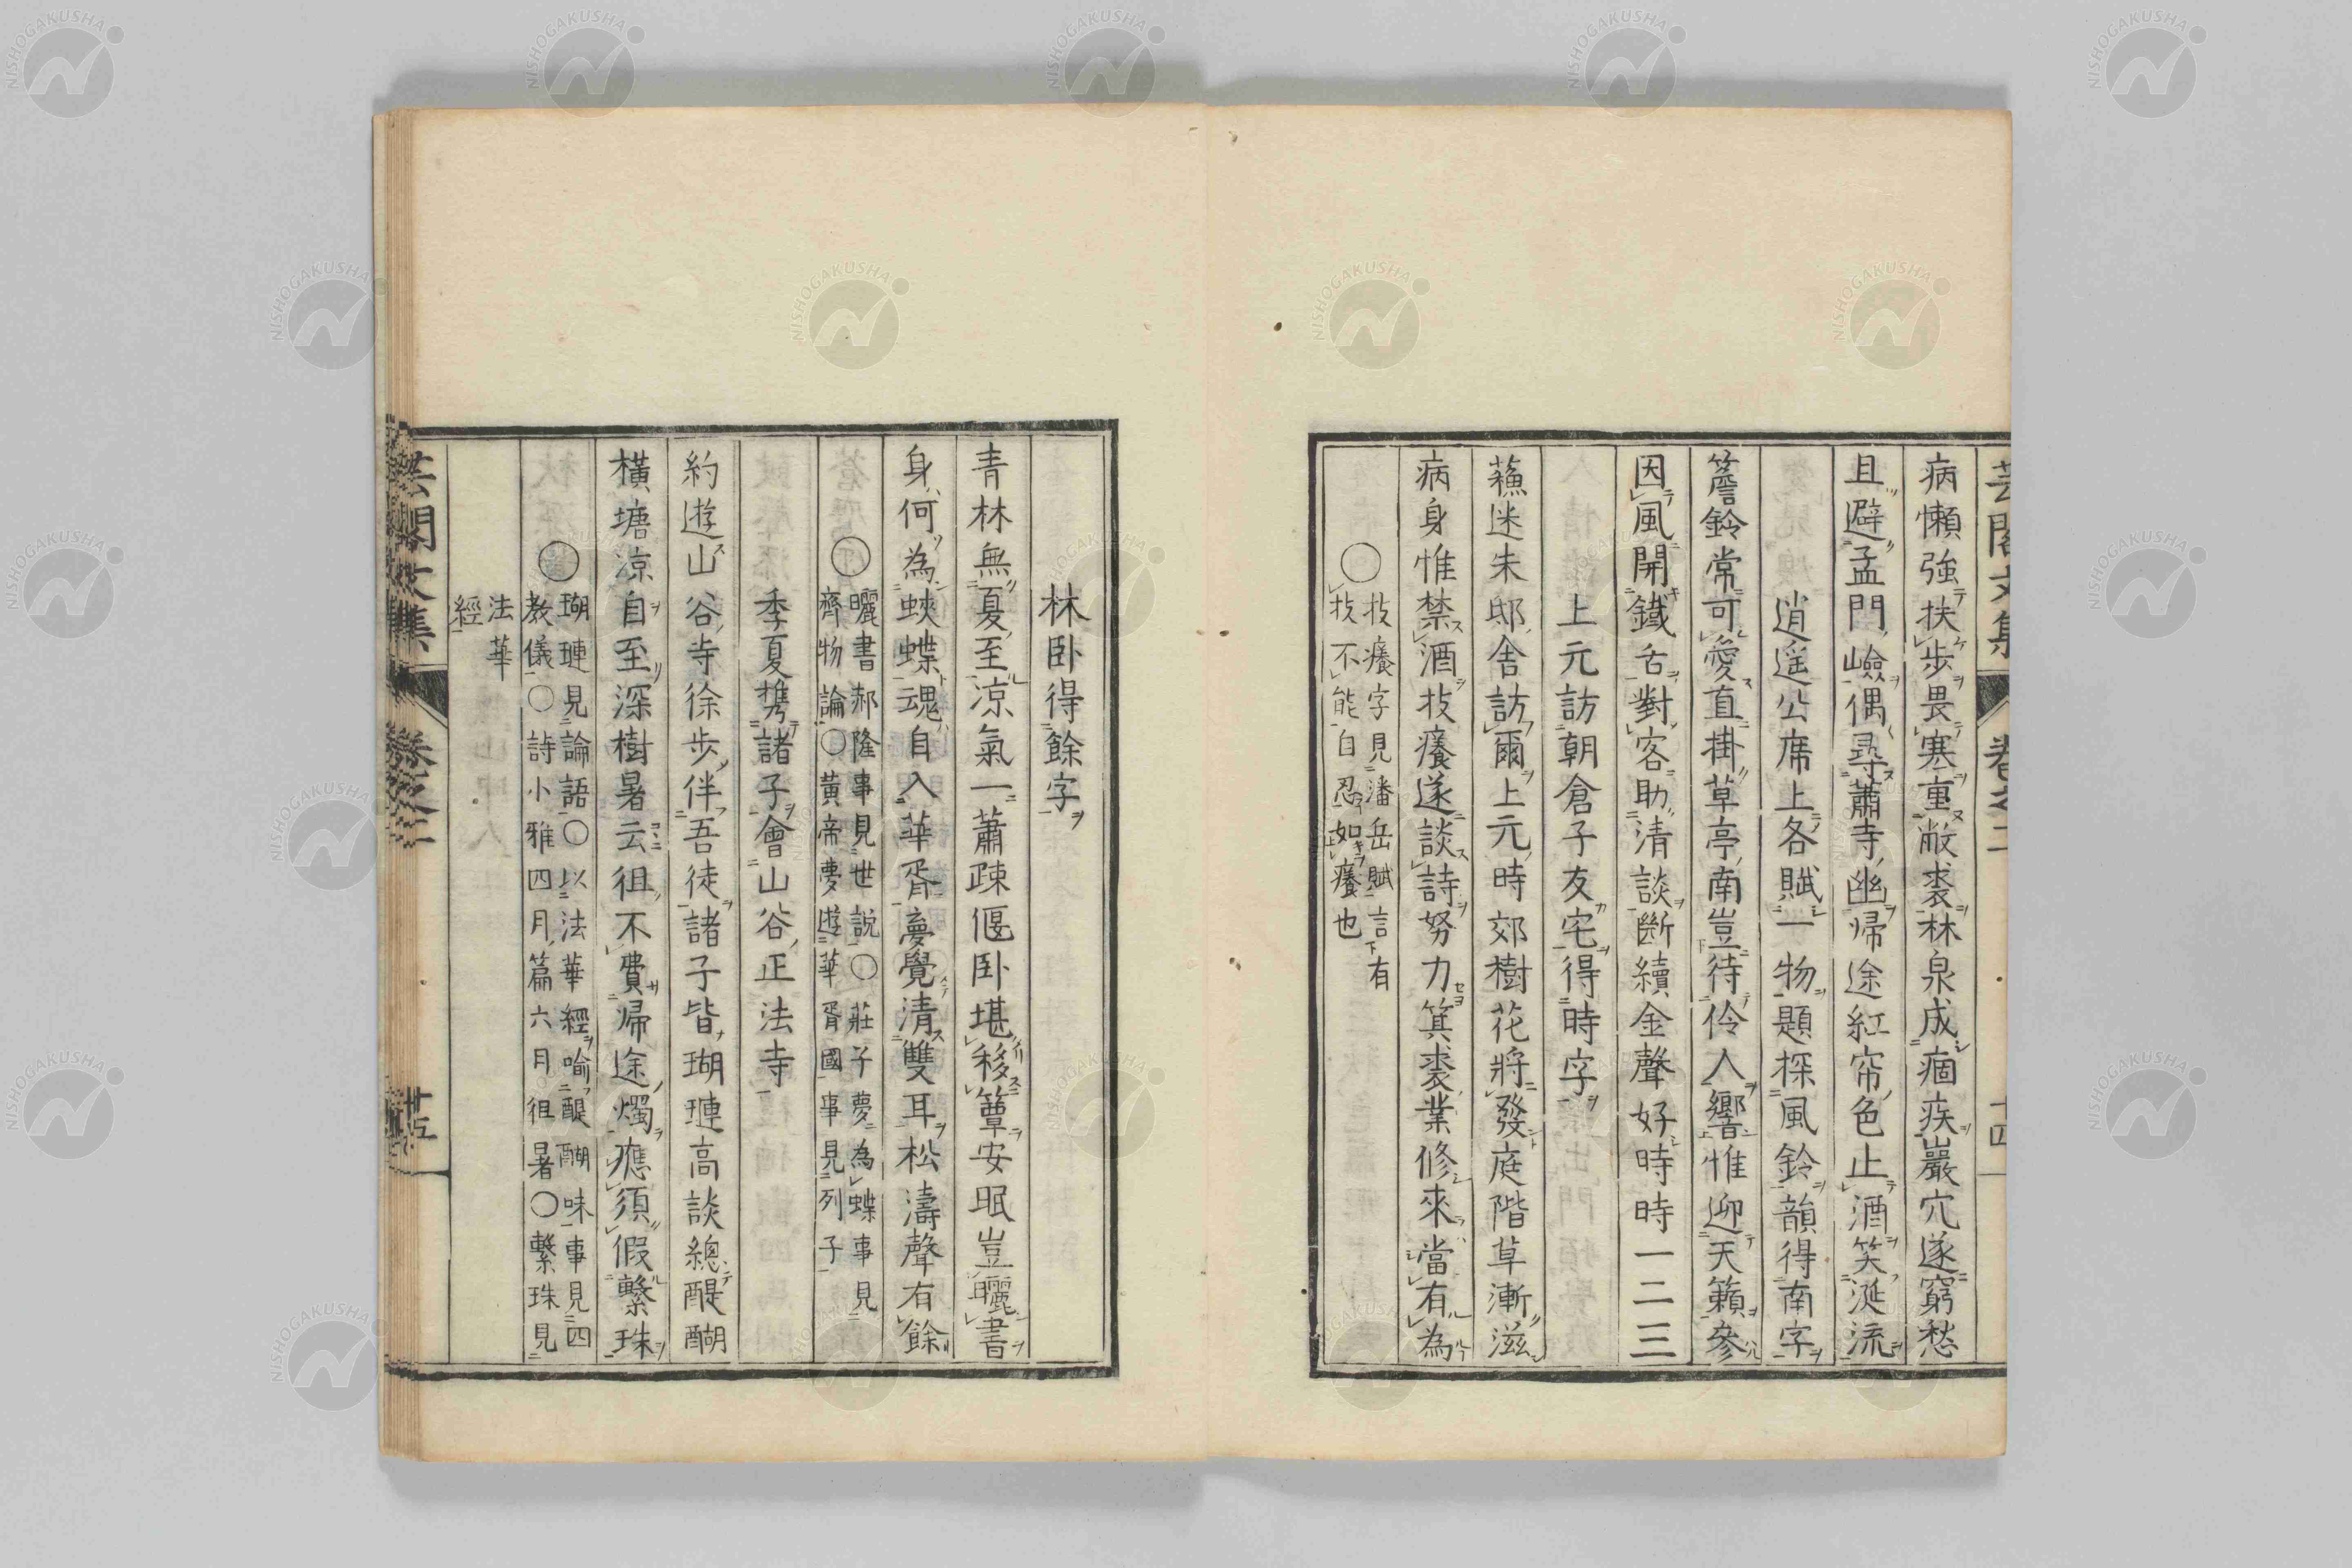 芸閣文集 卷之二 十四
病懶強扶步畏寒重敝裘林泉成痼疾巖穴遂窮愁
且避孟門嶮偶尋蕭寺幽帰途紅帘色止酒笑涎流
逍遥公席上各賦一物題探風鈴韻得南字
簷鈴常可愛直掛草亭南豈待伶人響惟迎天籟參
因風開鐵舌對客助清談斷續金聲好時時一二三
上元訪朝倉子友宅得時字
蘓迷朱邸舍訪爾上元時郊樹花將發庭階草漸滋
病身惟禁酒技癢遂談詩努力箕裘業修來當有為
○技癢字見潘岳賦言有
技不能自忍如癢也
林卧得餘字
青林無夏至凉氣一蕭疎偃卧堪移簟安眠豈曬書
身何為蛺蝶魂自入華胥夢覺清雙耳松濤聲有餘
○曬書郝隆事見世説○莊子夢為蝶事見
齊物論○黄帝夢遊華胥國事見列子
季夏携諸子會山谷正法寺
約遊山谷寺徐步伴吾徒諸子皆瑚璉高談總醍醐
橫塘涼自至深樹暑云徂不費帰途燭應須假繫珠
○瑚璉見論語○以法華經喻醍醐味事見四
教儀○詩小雅四月篇六月徂暑○繫珠見
法華
經
芸閣文集 卷之二 十五
NISHOGAKUSHA